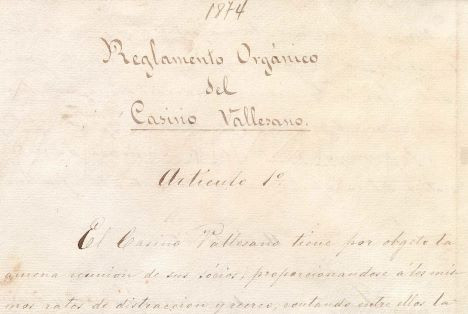 1874
Reglamento Orgánico
del
Casino Vallesano.
Artículo 1º
El Casino Vallesano tiene por objeto la
amena reunion de sus sócios, proporcionandose á los mis-
mos ratos de distraccion y recreo, contando entre ellos la